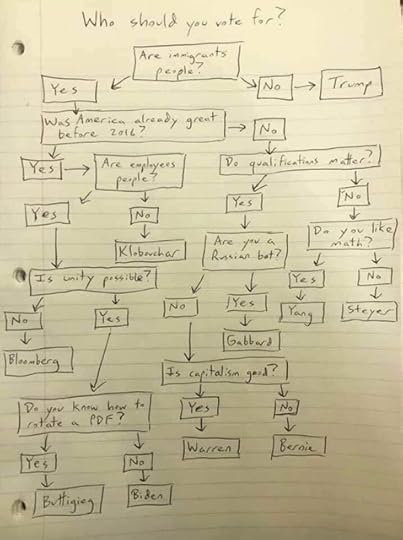 Who should you vote for?
Are immigrants
people?
Yes
No
Trump
Was America already great
before 2016?
No
Yes
Are employees
people?
Do qualifications matter?
Yes
No
Yes
No
Klobouchar
Are you a
Russian bot?
Do you like
math?
Is unity possible?
Yes
No
No
Yes
No
Yes
Yang
Steyer
Bloomberg
Gabbard
Is capitalism good?
Do you know how to
rotate a PDF?
Yes
No
Warren
Bernie
Yes
No
Buttigieg
Biden